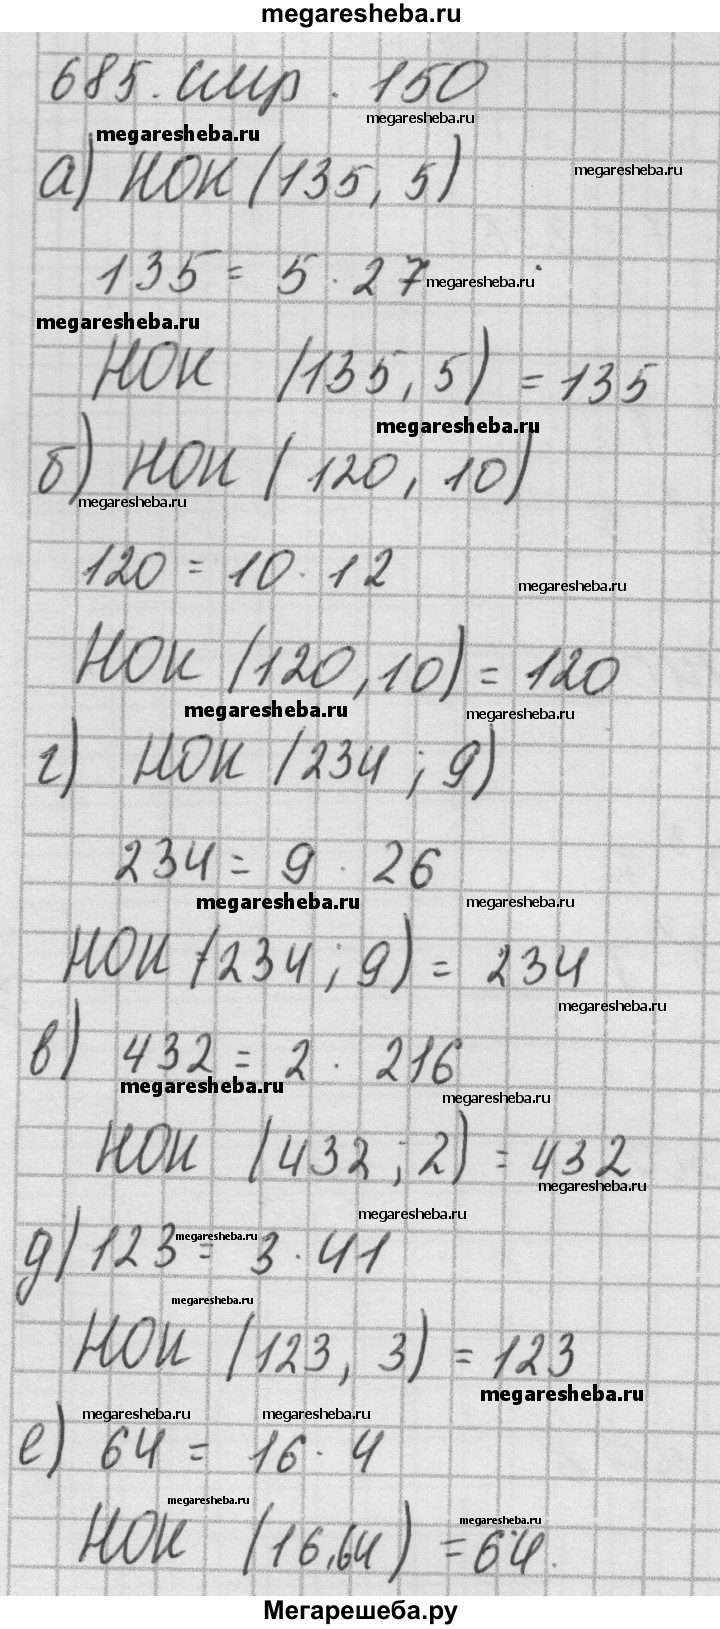 megaresheba.ru
685. стр. 150
megaresheba.ru megaresheba.ru
а) НОК (135, 5) megaresheba.ru
135 = 5 · 27 megaresheba.ru
megaresheba.ru
НОК (135, 5) = 135
megaresheba.ru
б) НОК (120, 10)
megaresheba.ru
120 = 10 · 12 megaresheba.ru
НОК (120, 10) = 120
megaresheba.ru megaresheba.ru
г) НОК (234 ; 9)
234 = 9 · 26
megaresheba.ru megaresheba.ru
НОК (234 ; 9) = 234
megaresheba.ru
в) 432 = 2 · 216
megaresheba.ru megaresheba.ru
НОК (432 ; 2) = 432
megaresheba.ru
megaresheba.ru
д) 123 = 3 · 41
megaresheba.ru
megaresheba.ru
НОК (123, 3) = 123
megaresheba.ru
megaresheba.ru megaresheba.ru
е) 64 = 16 · 4
megaresheba.ru megaresheba.ru
НОК (16, 64) = 64.
Мегарешеба.ру